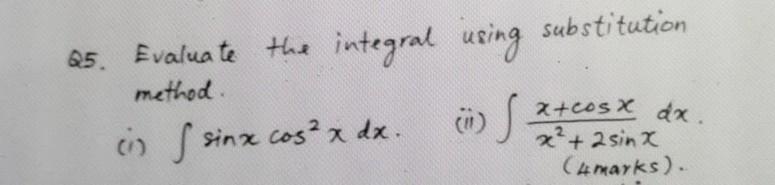 Q5. Evaluate the integral using substitution
method.
(i) ∫ sinx cos² x dx. (ii) ∫ (x+cosx)/(x²+2sinx) dx.
(4marks).